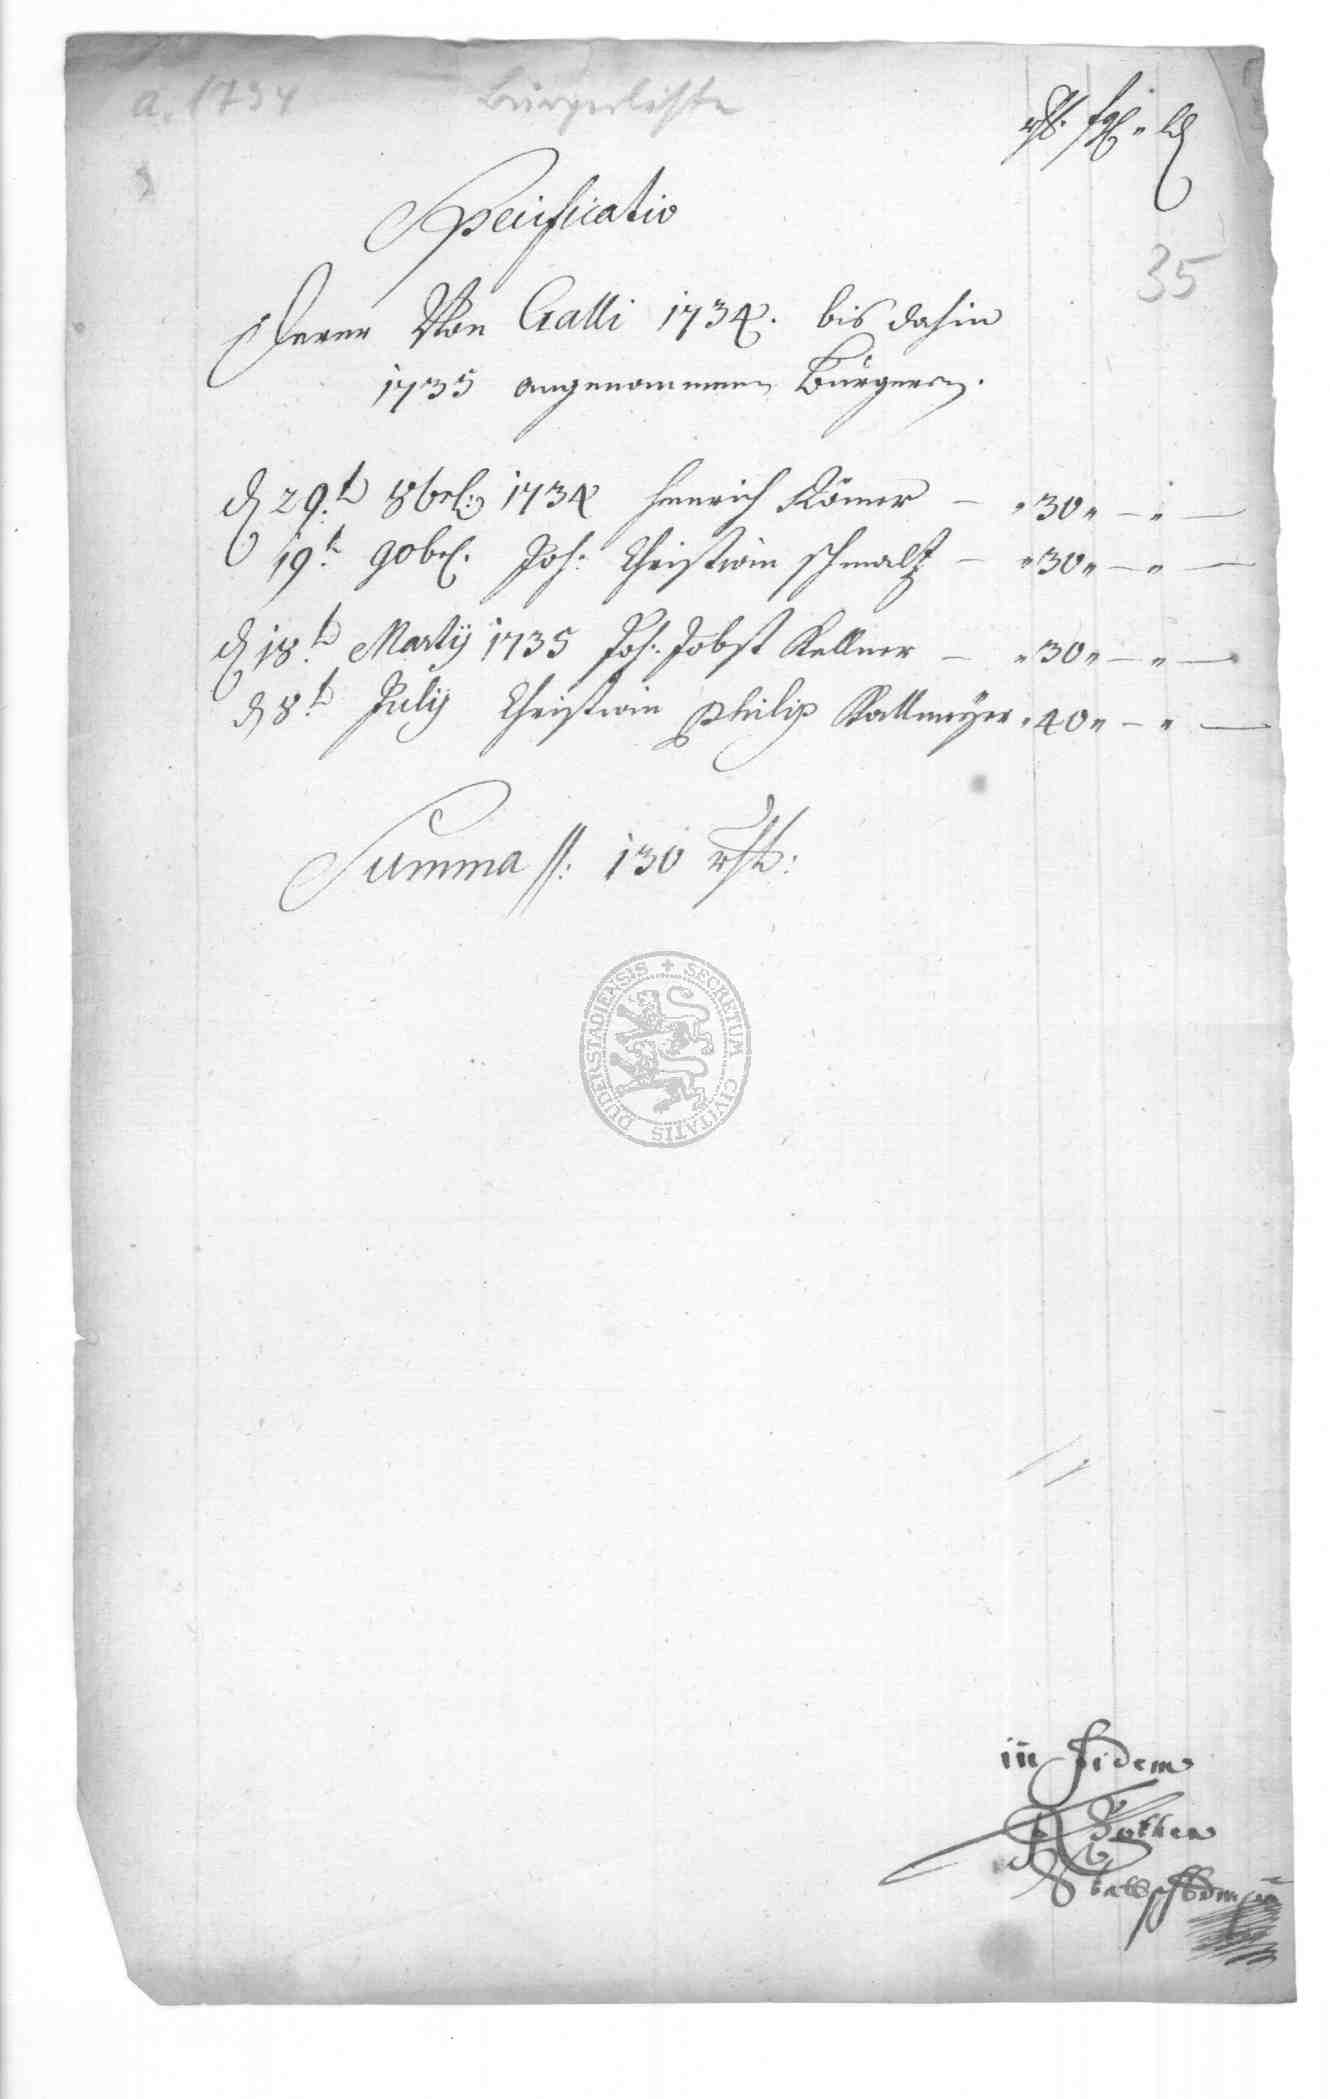 a. 1734 Bürgerliste
35
Specificatio
Derer Von Galli 1734. bis dahin
1735 angenommenen Bürgern.
d 29.t 8brl: 1734 Henrich Römer — " 30 " — " —
19t 9obrl. Joh: Christian Schmaltz — " 30 " — " —
d 18.t Martij 1735 Joh: Jobst Kellner — " 30 " — " —
d 8.t Julij Christian Philip Kallmeyer " 40 " — " —
Summa //: 130 rth:
SECRETUM CIVITATIS DUDERSTADIENSIS
in fidem